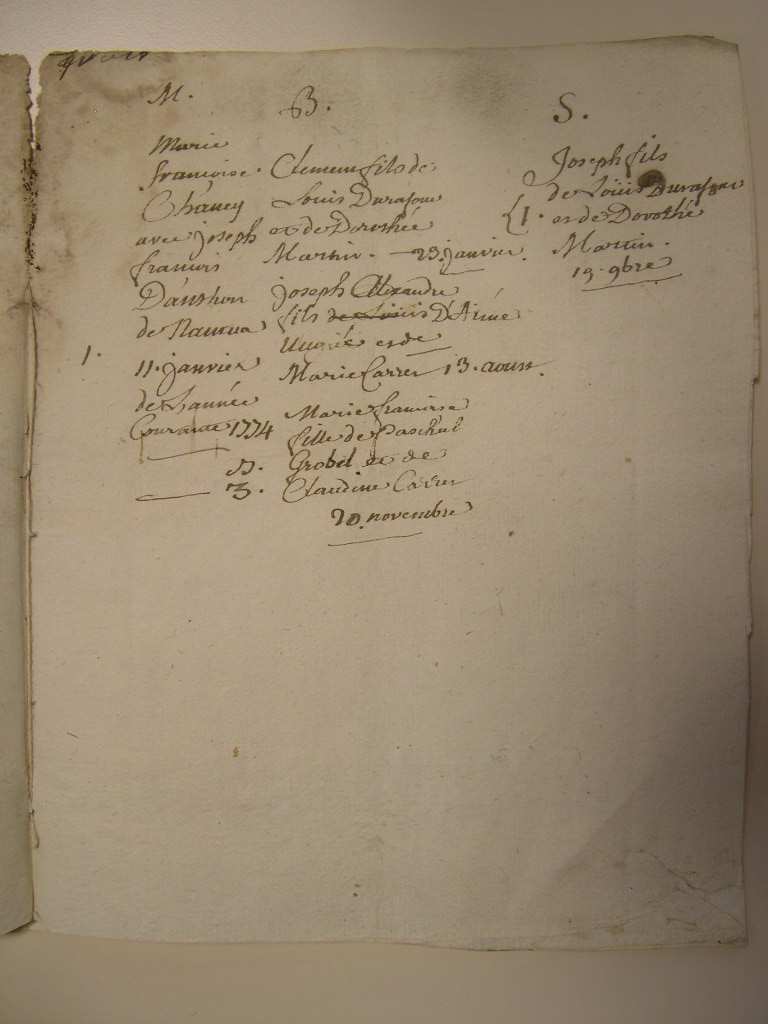 M.
Marie
francoise
Chaney
avec joseph
francois
de
1.
11. janvier
de Lannée
Courante 1774
B.
Clement fils de
Louis Durafour
et de Dorothée
Martin. 23. janvier.
joseph Alexandre
fils de Loüis D'Aimé
et de
Marie Carrer 13. aoust.
Marie francoise
fille de Paschal
B. Grobel et de
3. Claudine Carrer
20. novembre
S.
Joseph fils
de Loüis Durafour
1. et de Dorothé
Martin.
19. 9bre